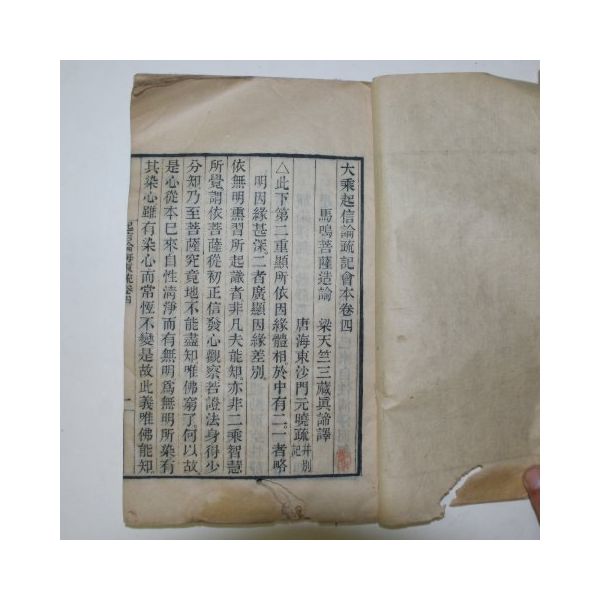 大乘起信論疏記會本卷四
馬鳴菩薩造論 梁天竺三藏眞諦譯
唐海東沙門元曉疏并別記
△此下第二重顯所依因緣體相於中有二一者略
明因緣甚深二者廣顯因緣差別
依無明熏習所起識者非凡夫能知亦非二乘智慧
所覺謂依菩薩從初正信發心觀察若證法身得少
分知乃至菩薩究竟地不能盡知唯佛窮了何以故
是心從本已來自性淸淨而有無明爲無明所染有
其染心雖有染心而常恆不變是故此義唯佛能知